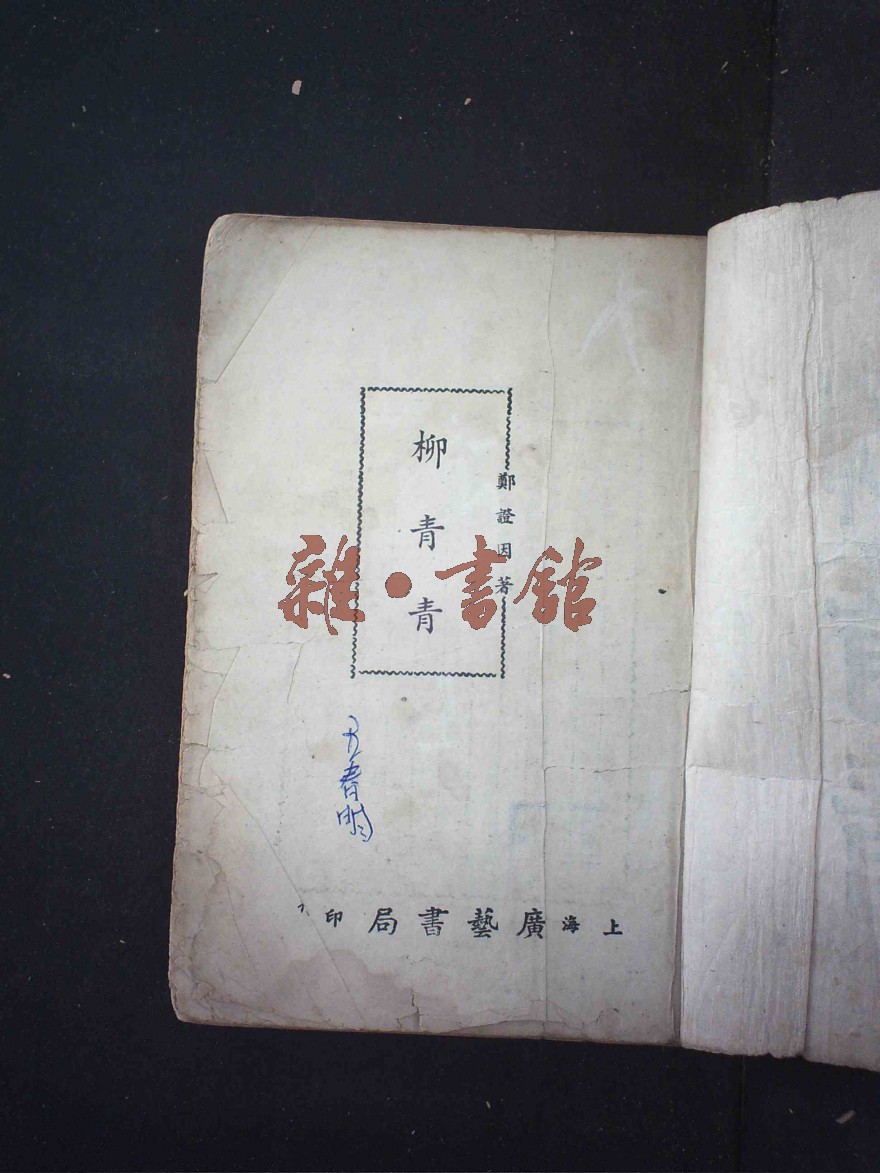 鄭證因著
柳青青
雜·書館
春明
上海廣藝書局印